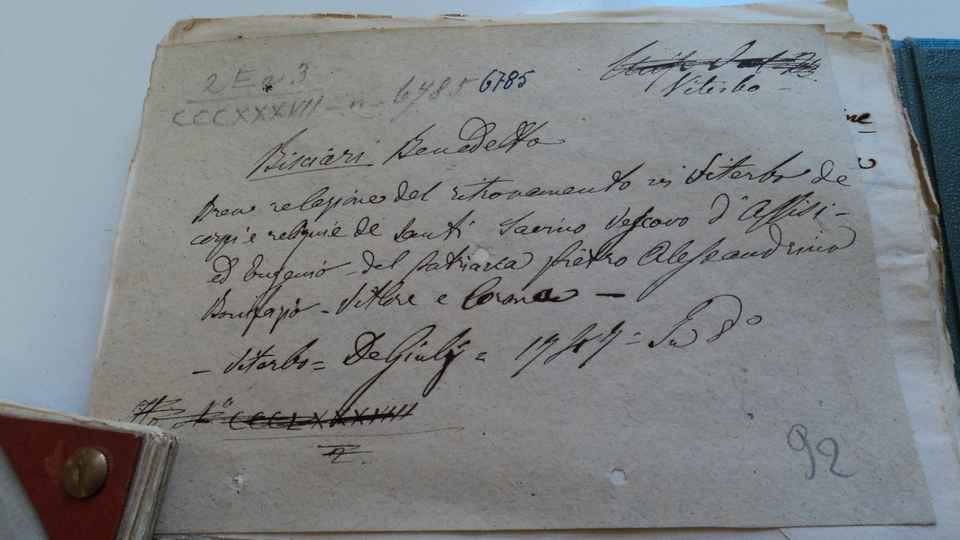 2 E a. 3
CCCXXXVII - n. 6785 6785
Viterbo -
Bisciari Benedetto
Breve relazione del ritrovamento in Viterbo de
corpi e reliquie de Santi Savino Vescovo d'Assisi -
ed Eugenio - del Patriarca Pietro Alessandrino
Bonifazio - Vittore e Corona -
- Viterbo = De Giulij = 17 = In 8°
CCCLXXXVIII
2.
92